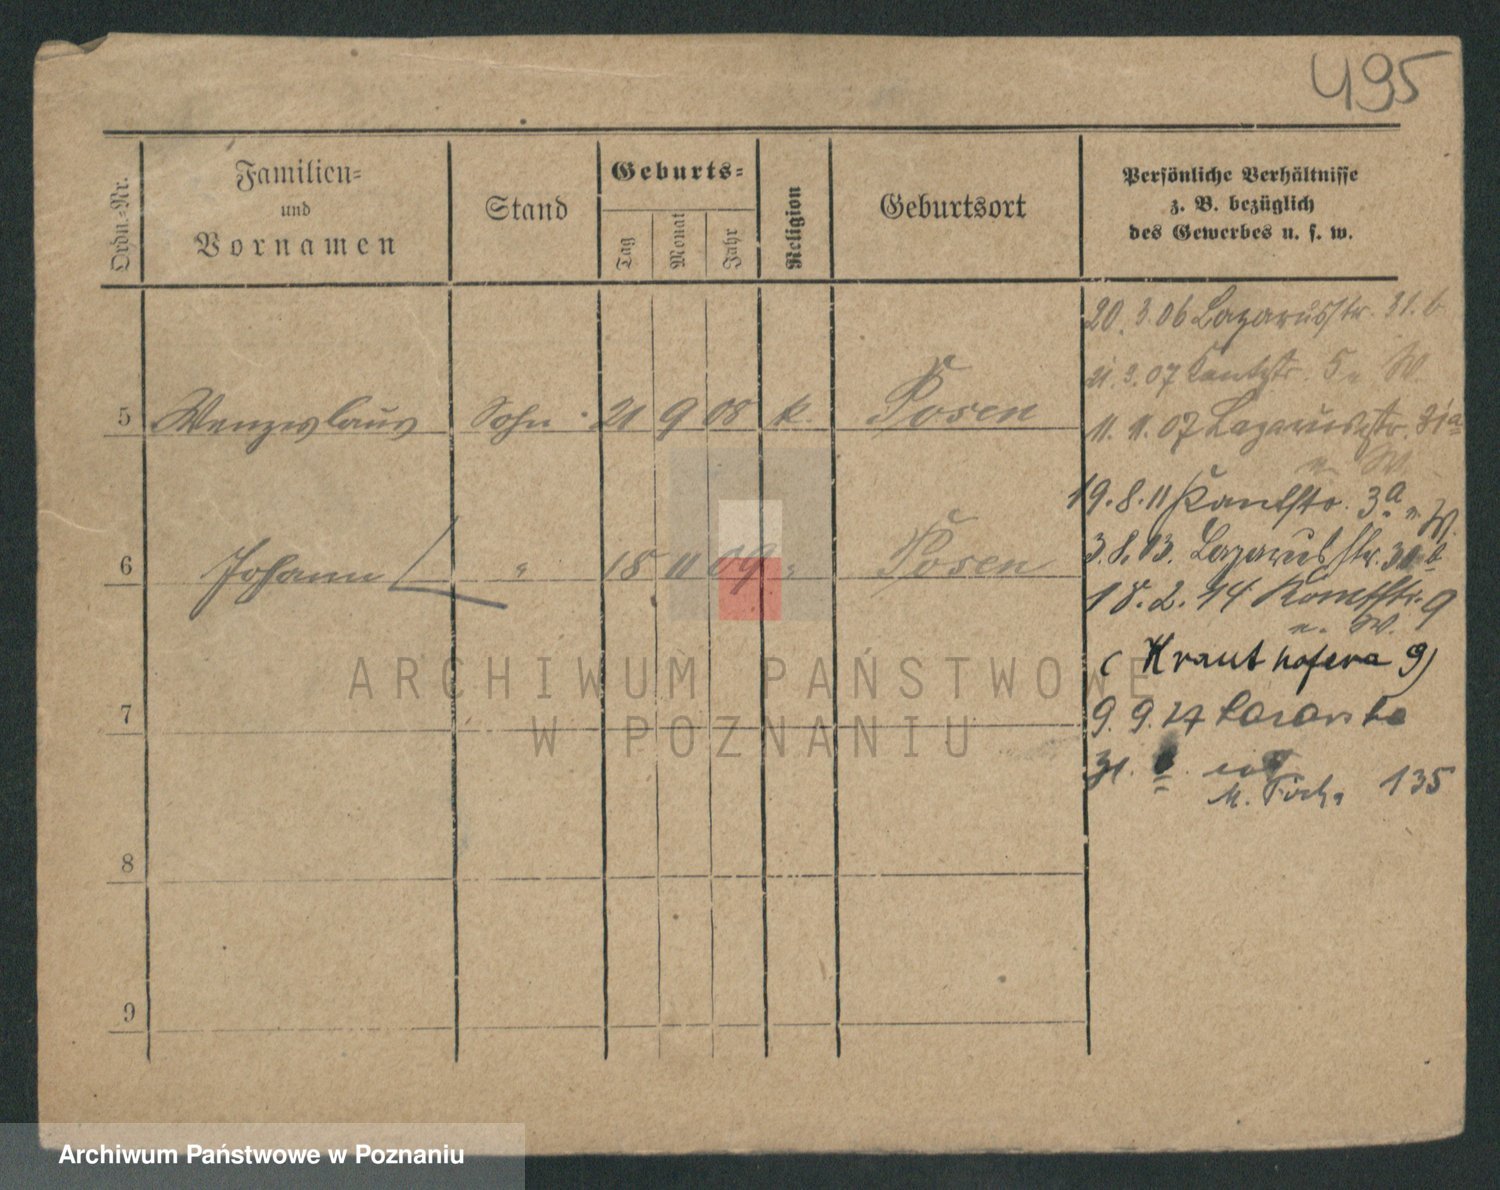 495
Ordn.-Nr.
Familien-
und
Vornamen
Stand
Geburts-
Tag
Monat
Jahr
Religion
Geburtsort
Persönliche Verhältnisse
z. B. bezüglich
des Gewerbes u. s. w.
20. 3. 06 Lazarusstr. 31. b
21. 3. 07 Kantstr. 5 W
5 Wenzeslaus Sohn 21 9 08 k. Posen
11. 11. 07 Lazarusstr. 31a
W.
19. 8. 11 Kantstr. 3a W.
3. 8. 13. Lazarusstr. 31 b
6 Johann " 18 11 09 " Posen
18. 2. 14 9
W.
( Krauthofera 9)
7
9. 9. 27
31.
M. Foch 135
8
9
ARCHIWUM PAŃSTWOWE
W POZNANIU
Archiwum Państwowe w Poznaniu